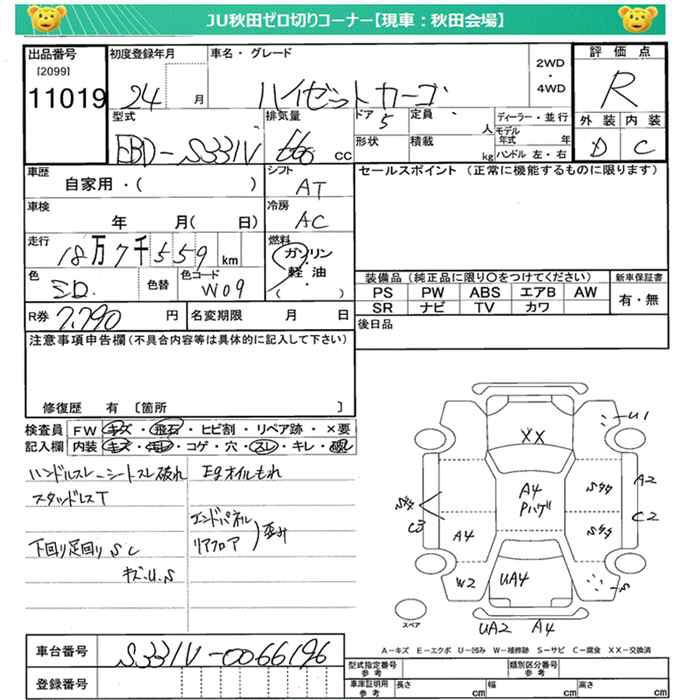 JU秋田ゼロ切りコーナー【現車：秋田会場】
出品番号
[2099]
11019
初度登録年月
24 月
車名・グレード
ハイゼットカーゴ
2WD
・
4WD
評価点
R
外装 内装
D C
型式
EBD-S331V
排気量
660 cc
ドア
5
定員
人
ディーラー・並行
モデル年式 年
形状
積載
kg
ハンドル 左・右
車歴
自家用・( )
シフト
AT
セールスポイント (正常に機能するものに限ります)
車検
年 月( 日)
冷房
AC
走行
18万7千559 km
燃料
ガソリン
・
軽油
( )
色
色替
色コード
W09
装備品 (純正品に限り〇をつけてください)
PS PW ABS エアB AW
SR ナビ TV カワ
新車保証書
有・無
R券
7,790 円
名変期限 月 日
後日品
注意事項申告欄 (不具合内容等は具体的に記入して下さい)
修復歴 有 [箇所 ]
検査員 FW キズ・飛石・ヒビ割・リペア跡・×要
記入欄 内装 キズ・汚れ・コゲ・穴・スレ・キレ・破レ
ハンドルスレ シートスレ破れ
スタッドレスT
下回り足回りS C
キズ.U.S
Egオイルもれ
エンドパネル
リアフロア
歪み
XX
U1
A2
C2
A4
Pハゲ
C3
A4
W2
UA4
S
UA2 A4
スペア
A-キズ E-エクボ U-凹み W-補修跡 S-サビ C-腐食 XX-交換済
車台番号
S331V-0066196
登録番号
型式指定番号
参考
類別区分番号
参考
車庫証明用
参考
長さ cm
幅 cm
高さ cm